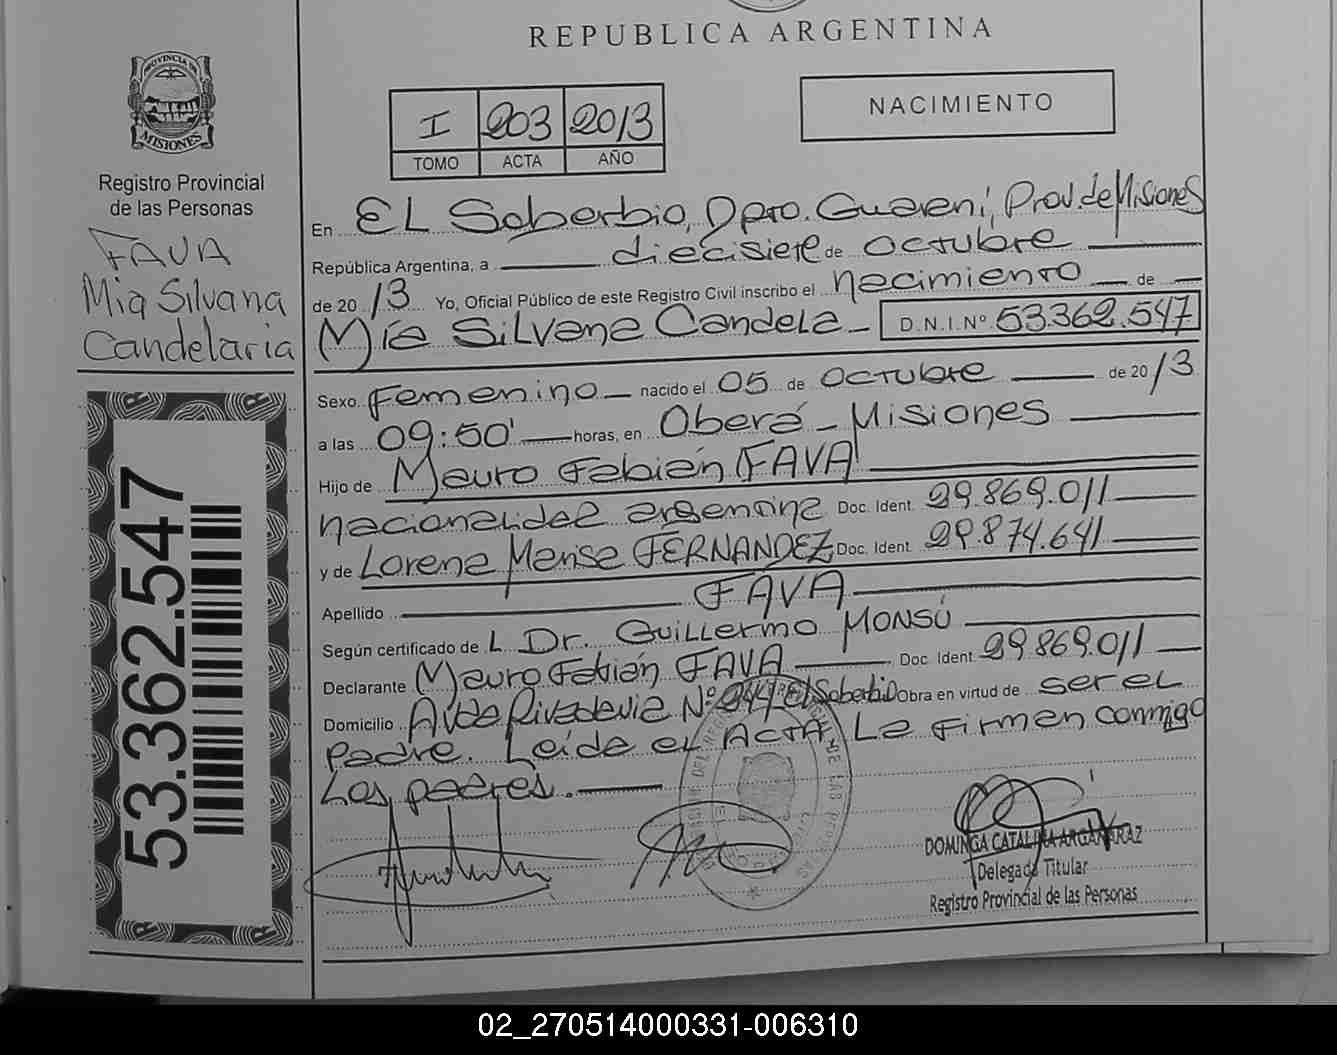 REPUBLICA ARGENTINA
PROVINCIA DE
MISIONES
Registro Provincial
de las Personas
FAVA
Mia Silvana
Candelaria
53.362.547
I 203 2013
TOMO ACTA AÑO
NACIMIENTO
En El Soberbio, Dpto. Guaraní, Prov. de Misiones
República Argentina, a diecisiete de octubre
de 2013 Yo, Oficial Público de este Registro Civil inscribo el nacimiento de
Mía Silvana Candela D.N.I.Nº 53.362.547
Sexo Femenino nacido el 05 de octubre de 2013
a las 09:50' horas, en Oberá - Misiones
Hijo de Mauro Fabián FAVA
nacionalidad argentina Doc. Ident. 29.869.011
y de Lorena Marisa FERNANDEZ Doc. Ident. 29.874.641
Apellido FAVA
Según certificado de L Dr. Guillermo MONSÚ
Declarante Mauro Fabián FAVA Doc. Ident. 29869.011
Domicilio Avda Rivadavia Nº El Soberbio Obra en virtud de ser el
padre. Leída el ACTA, La firman conmigo
Los padres.
DOMINGA CATALINA ARGAÑARAZ
Delegada Titular
Registro Provincial de las Personas
02_270514000331-006310